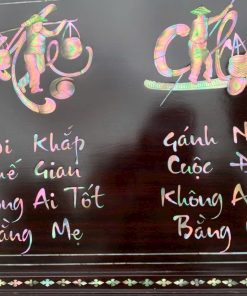 Mẹ
i Khắp
hế Gian
ông Ai Tốt
ằng Mẹ
Cha
Gánh N
Cuộc Đ
Không A
Bằng C